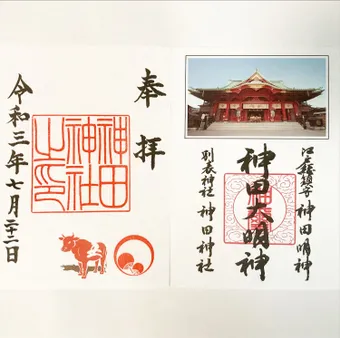 奉拝
神田
神社
之印
令和三年七月二十二日
江戸総鎮守 神田明神
神田大明神
別表神社 神田神社